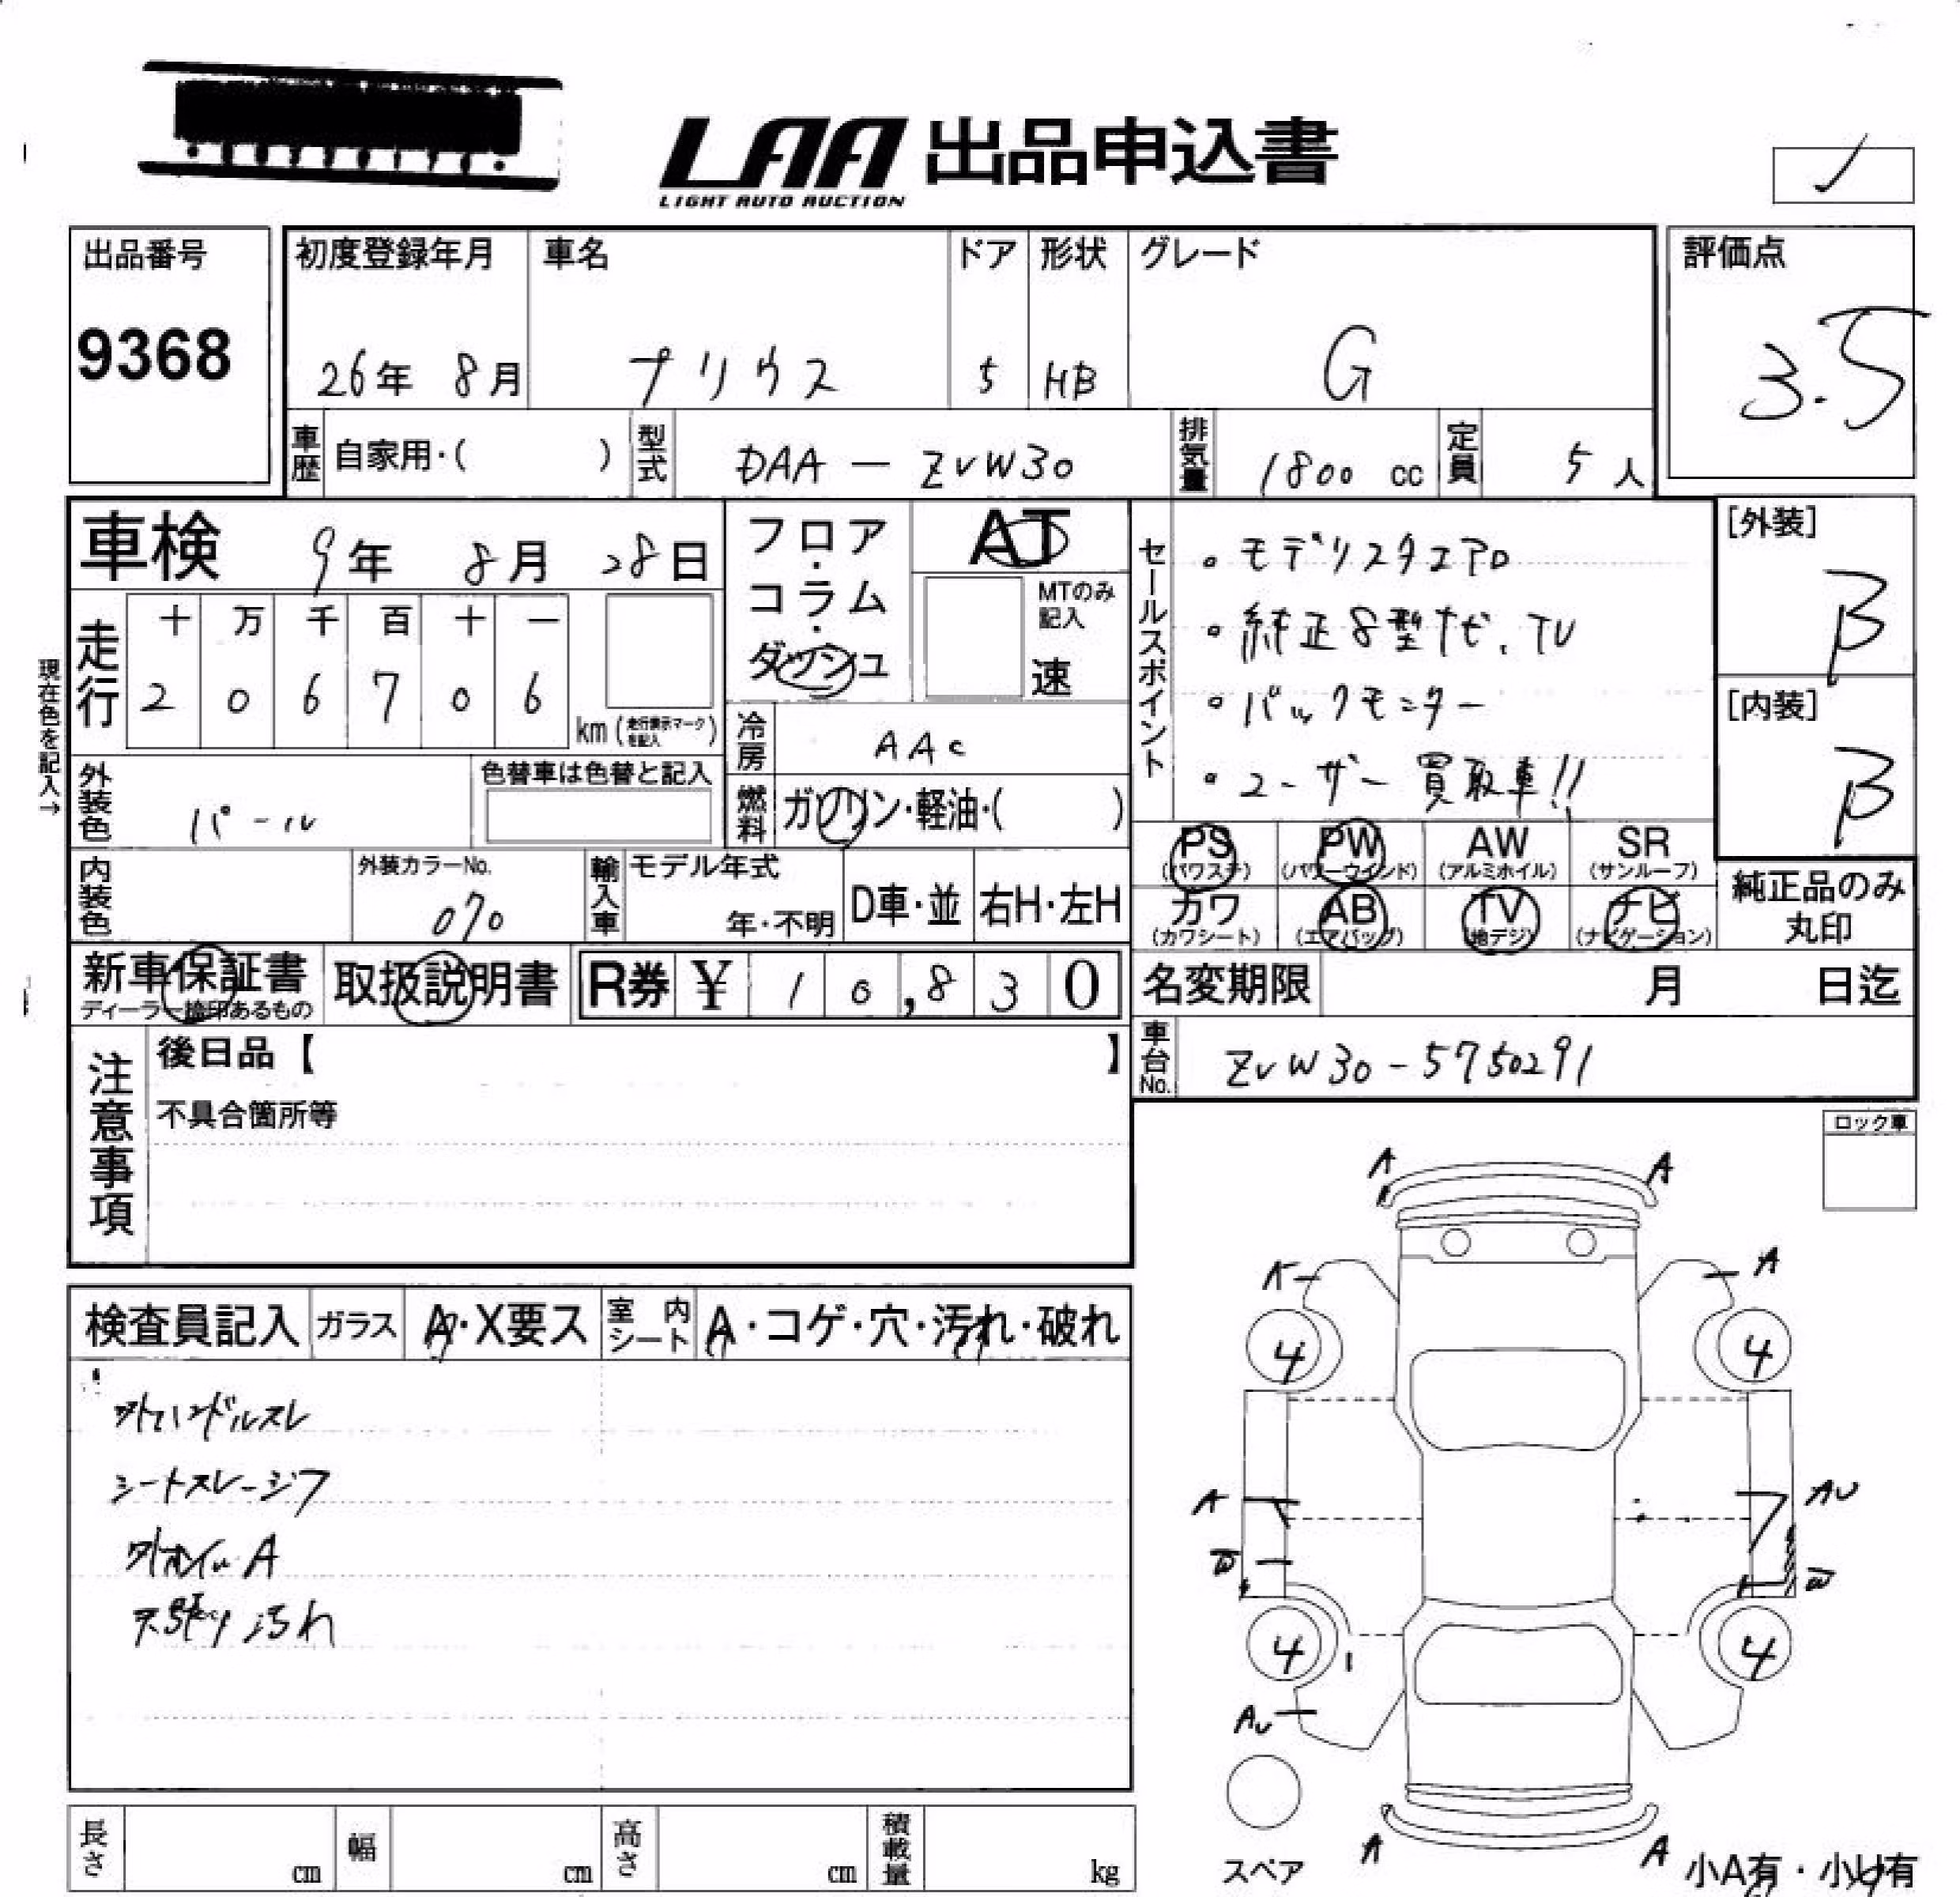 LAA 出品申込書
LIGHT AUTO AUCTION
出品番号
9368
初度登録年月
26年 8月
車名
プリウス
ドア
5
形状
HB
グレード
G
評価点
3.5
車歴
自家用・( )
型式
DAA - ZVW30
排気量
1800 cc
定員
5 人
車検 9年 8月 28日
フロア・コラム・ダッシュ
AT
MTのみ記入
速
セールスポイント
・モデリスタエアロ
・純正8型ナビ、TV
・バックモニター
・ユーザー買取車!!
[外装]
B
[内装]
B
現在色を記入→
走行
十 万 千 百 十 一
2 0 6 7 0 6
km (走行表示マークを記入)
冷房
AAC
燃料
ガソリン・軽油・( )
外装色
パール
色替車は色替と記入
内装色
外装カラーNo.
070
輸入車
モデル年式
年・不明
D車・並
右H・左H
PS (パワステ)
PW (パワーウインド)
AW (アルミホイル)
SR (サンルーフ)
カワ (カワシート)
AB (エアバッグ)
TV (地デジ)
ナビ (ナビゲーション)
純正品のみ丸印
新車保証書
ディーラー捺印あるもの
取扱説明書
R券 ¥ 10,830
名変期限 月 日迄
車台No.
ZVW30-5750291
注意事項
後日品【 】
不具合箇所等
ロック車
検査員記入
ガラス
A・X要ス
室内シート
A・コゲ・穴・汚れ・破れ
外ハンドルスレ
シートスレ・シワ
外ホイルA
天張り汚れ
A A
A
4 4
A AU
W W
4 4
AU
スペア
A A
小A有・小U有
長さ cm
幅 cm
高さ cm
積載量 kg